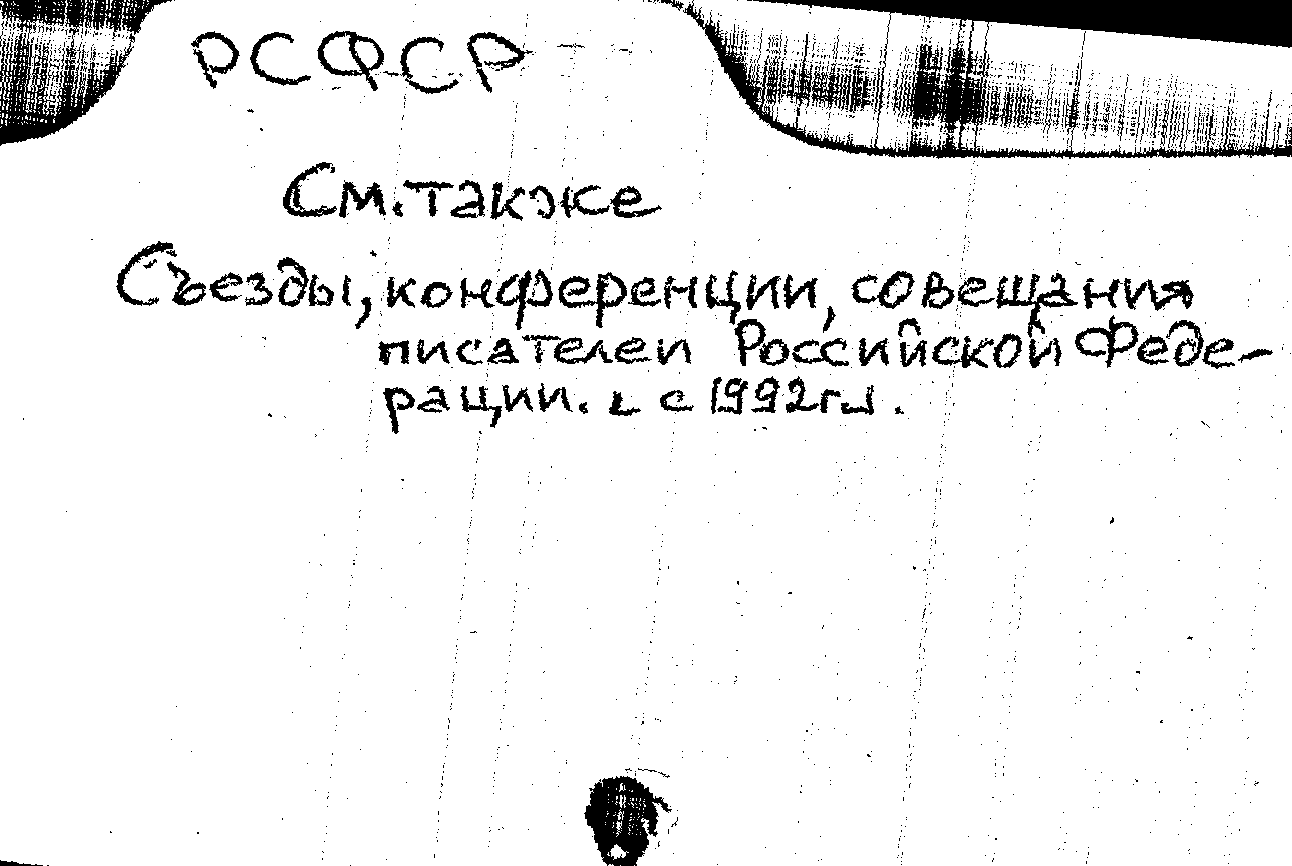 РСФСР
См. также
Съезды, конференции, совещания
писателей Российской Феде-
рации. с 1992г.